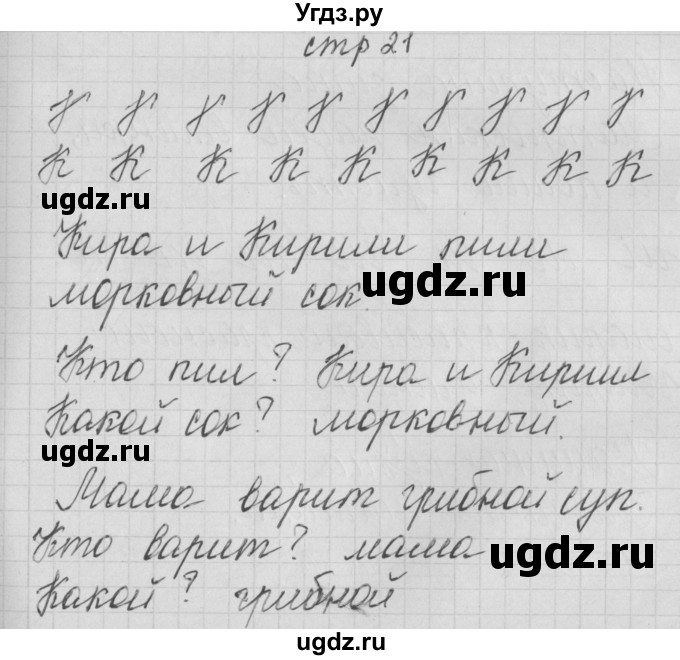 Угдз.ру
стр 21
К К К К К К К К К
ugdz.ru
Кира и Кирилл пили
морковный сок.
ugdz.ru
Кто пил? Кира и Кирилл
Какой сок? морковный.
ugdz.ru
Мама варит грибной суп.
Кто варит? мама
ugdz.ru
Какой? грибной
ugdz.ru